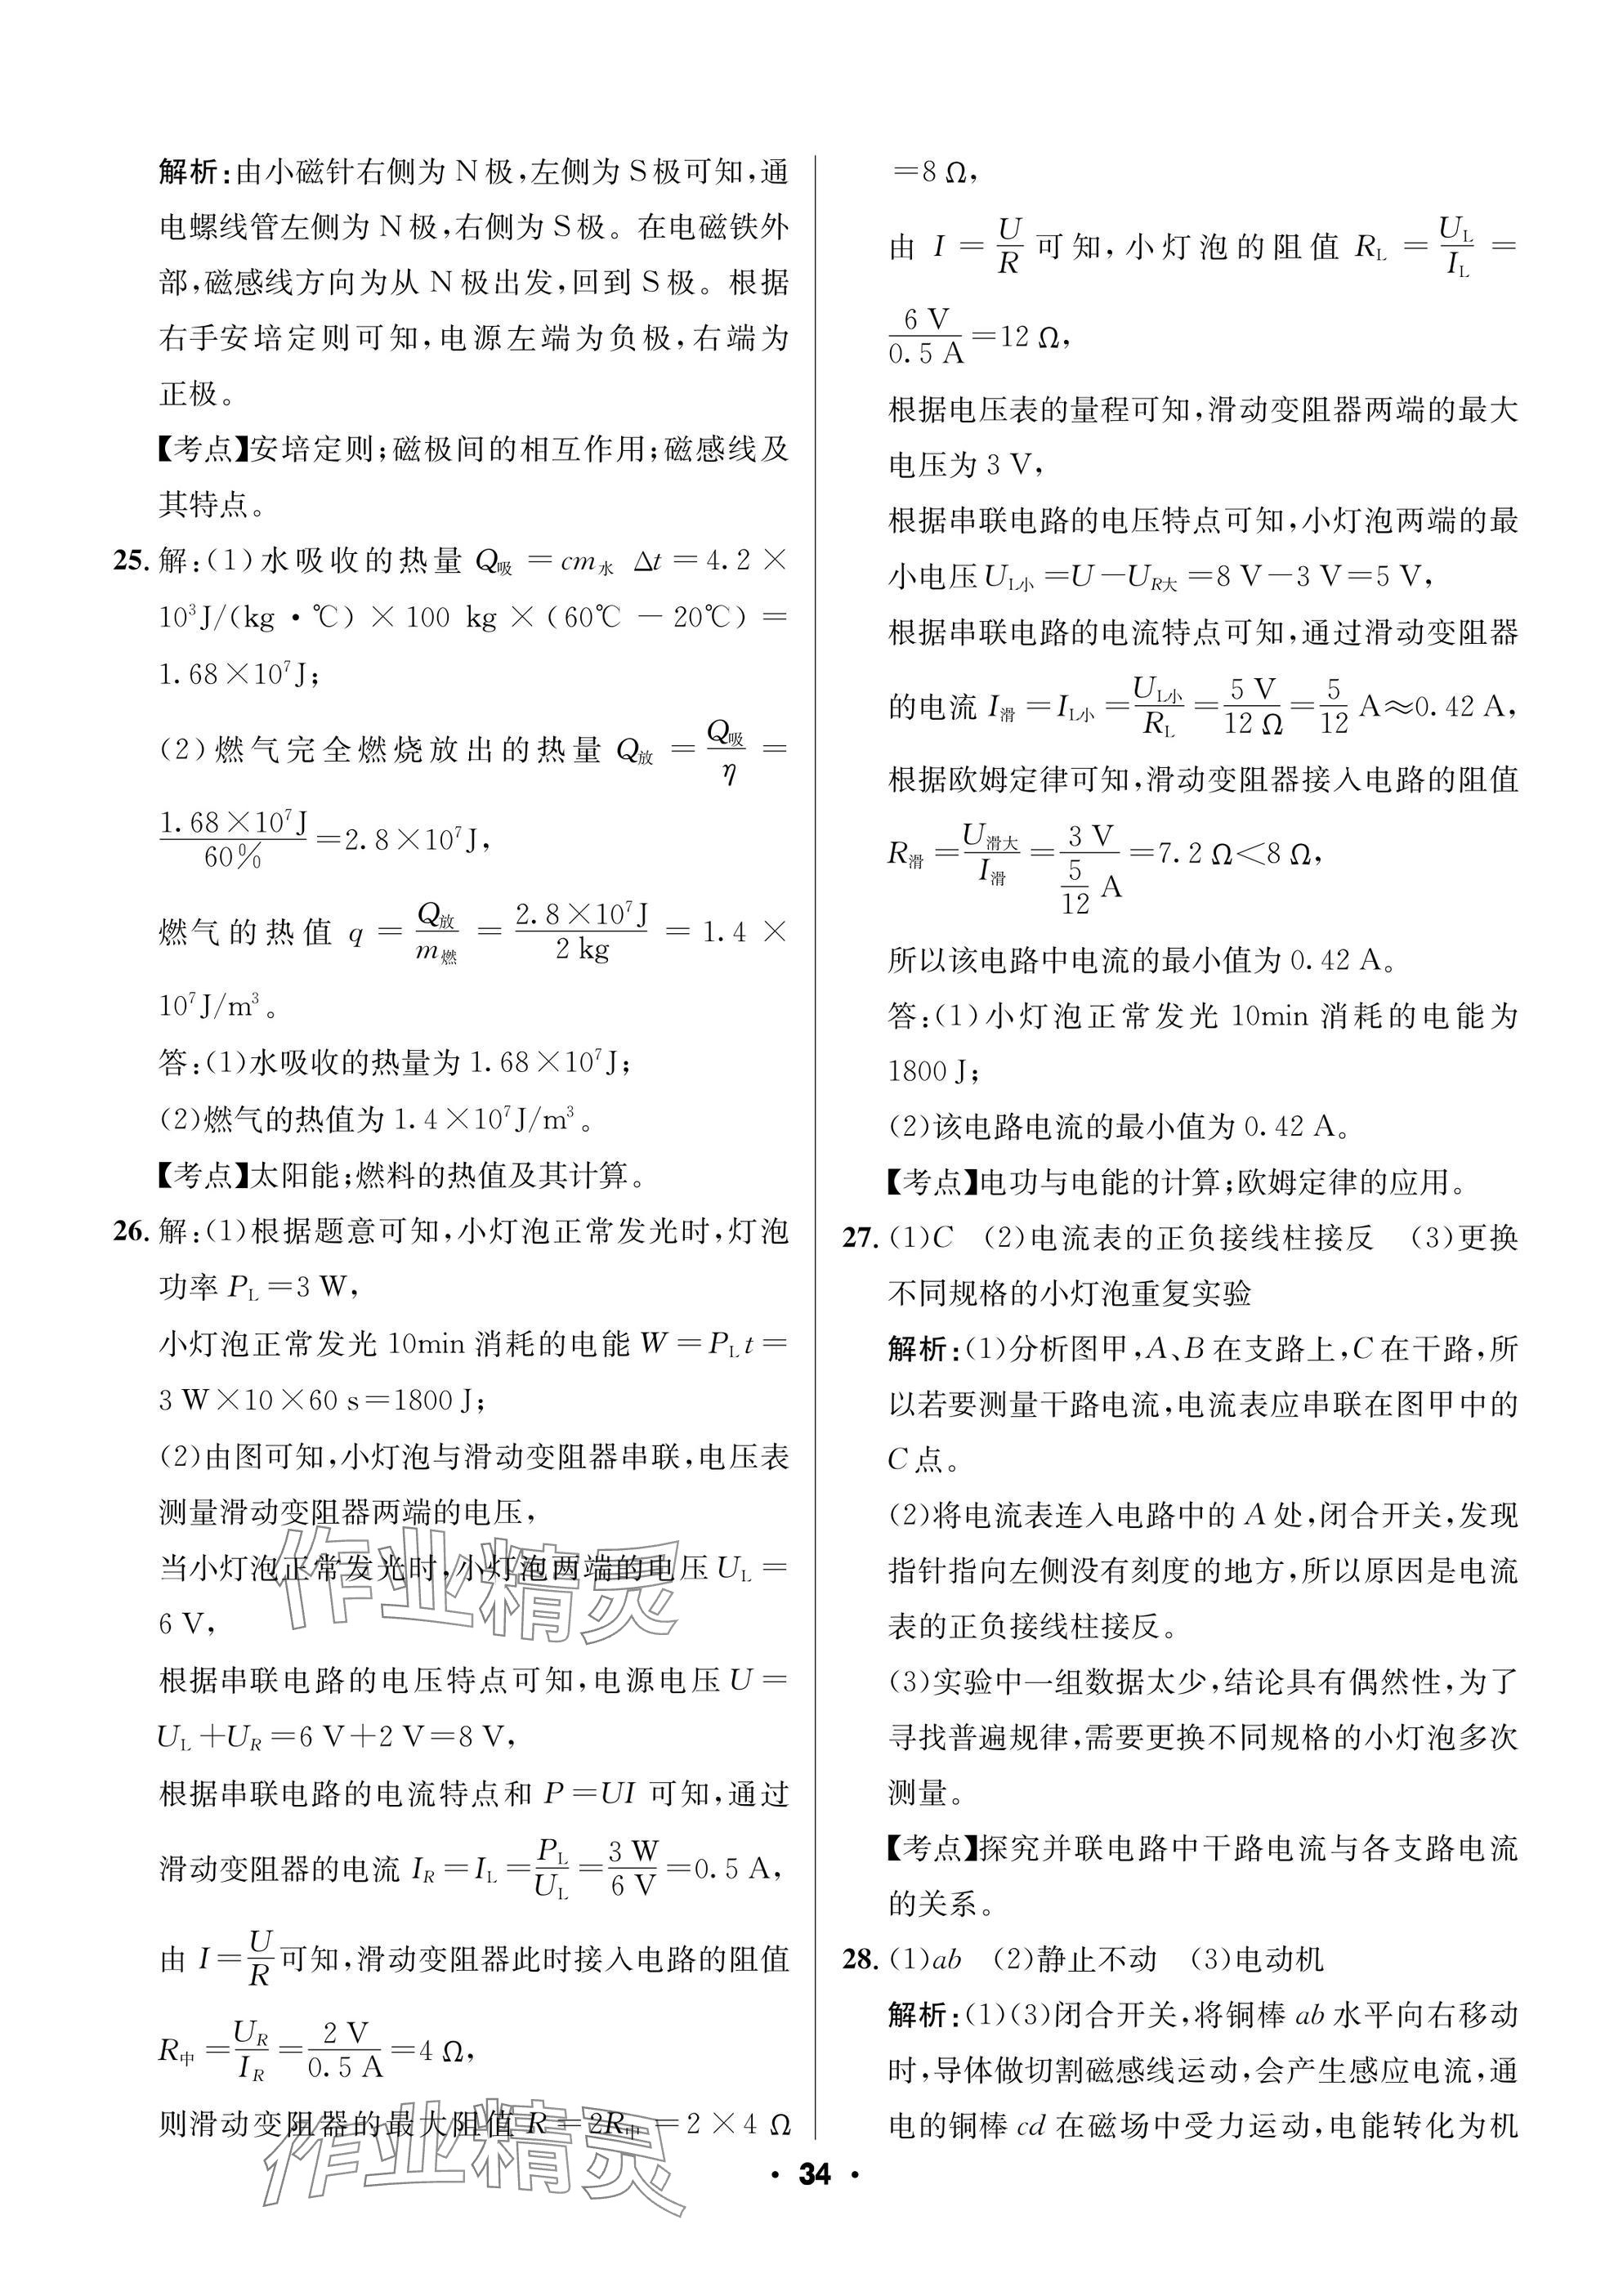 解析:由小磁针右侧为 N 极,左侧为 S 极可知,通
电螺线管左侧为 N 极,右侧为 S 极。在电磁铁外
部,磁感线方向为从 N 极出发,回到 S 极。根据
右手安培定则可知,电源左端为负极,右端为
正极。
【考点】安培定则;磁极间的相互作用;磁感线及
其特点。
25. 解:(1)水吸收的热量 Q吸 = cm水 Δt = 4.2 ×
10³J/(kg·℃) × 100 kg × (60℃ − 20℃) =
1.68×10⁷J;
(2)燃气完全燃烧放出的热量 Q放 = Q吸/η =
1.68×10⁷J/60% =2.8×10⁷J,
燃气的热值 q = Q放/m燃 = 2.8×10⁷J/2 kg = 1.4 ×
10⁷J/m³。
答:(1)水吸收的热量为 1.68×10⁷J;
(2)燃气的热值为 1.4×10⁷J/m³。
【考点】太阳能;燃料的热值及其计算。
26. 解:(1)根据题意可知,小灯泡正常发光时,灯泡
功率 PL =3 W,
小灯泡正常发光 10min 消耗的电能 W=PLt=
3 W×10×60 s=1800 J;
(2)由图可知,小灯泡与滑动变阻器串联,电压表
测量滑动变阻器两端的电压,
当小灯泡正常发光时,小灯泡两端的电压 UL =
6 V,
根据串联电路的电压特点可知,电源电压 U=
UL+UR=6 V+2 V=8 V,
根据串联电路的电流特点和 P=UI 可知,通过
滑动变阻器的电流 IR=IL=PL/UL=3 W/6 V=0.5 A,
由 I=U/R可知,滑动变阻器此时接入电路的阻值
R中=UR/IR=2 V/0.5 A=4 Ω,
则滑动变阻器的最大阻值 R=2R中=2×4 Ω
=8 Ω,
由 I = U/R 可知,小灯泡的阻值 RL = UL/IL =
6 V/0.5 A=12 Ω,
根据电压表的量程可知,滑动变阻器两端的最大
电压为 3 V,
根据串联电路的电压特点可知,小灯泡两端的最
小电压 UL小=U−UR大=8 V−3 V=5 V,
根据串联电路的电流特点可知,通过滑动变阻器
的电流 I滑=IL小=UL小/RL=5 V/12 Ω=5/12 A≈0.42 A,
根据欧姆定律可知,滑动变阻器接入电路的阻值
R滑=U滑大/I滑=3 V/(5/12 A)=7.2 Ω<8 Ω,
所以该电路中电流的最小值为 0.42 A。
答:(1)小灯泡正常发光 10min 消耗的电能为
1800 J;
(2)该电路电流的最小值为 0.42 A。
【考点】电功与电能的计算;欧姆定律的应用。
27. (1)C (2)电流表的正负接线柱接反 (3)更换
不同规格的小灯泡重复实验
解析:(1)分析图甲,A、B 在支路上,C 在干路,所
以若要测量干路电流,电流表应串联在图甲中的
C 点。
(2)将电流表连入电路中的 A 处,闭合开关,发现
指针指向左侧没有刻度的地方,所以原因是电流
表的正负接线柱接反。
(3)实验中一组数据太少,结论具有偶然性,为了
寻找普遍规律,需要更换不同规格的小灯泡多次
测量。
【考点】探究并联电路中干路电流与各支路电流
的关系。
28. (1)ab (2)静止不动 (3)电动机
解析:(1)(3)闭合开关,将铜棒 ab 水平向右移动
时,导体做切割磁感线运动,会产生感应电流,通
电的铜棒 cd 在磁场中受力运动,电能转化为机
作业精灵
作业精灵
· 34 ·